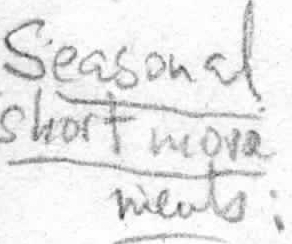 Seasonal
short move
ments: